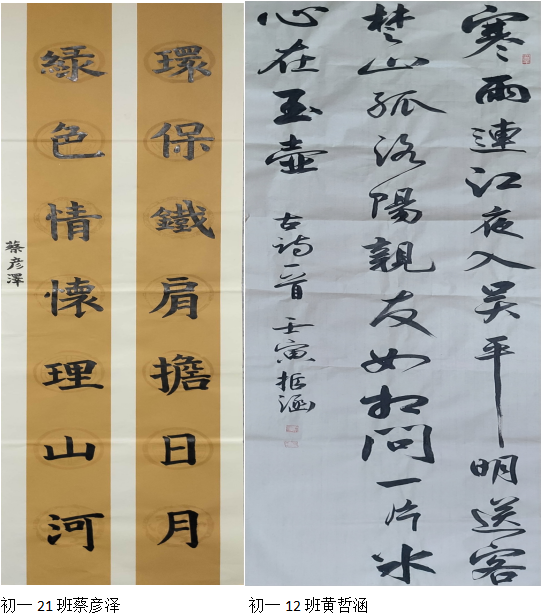 環保鐵肩擔日月
緑色情懷理山河
蔡彦澤
寒雨連江夜入吴平明送客
楚山孤洛陽親友如相問一片冰
心在玉壺
古詩一首 壬寅 哲涵
初一 21 班蔡彦泽
初一 12 班黄哲涵